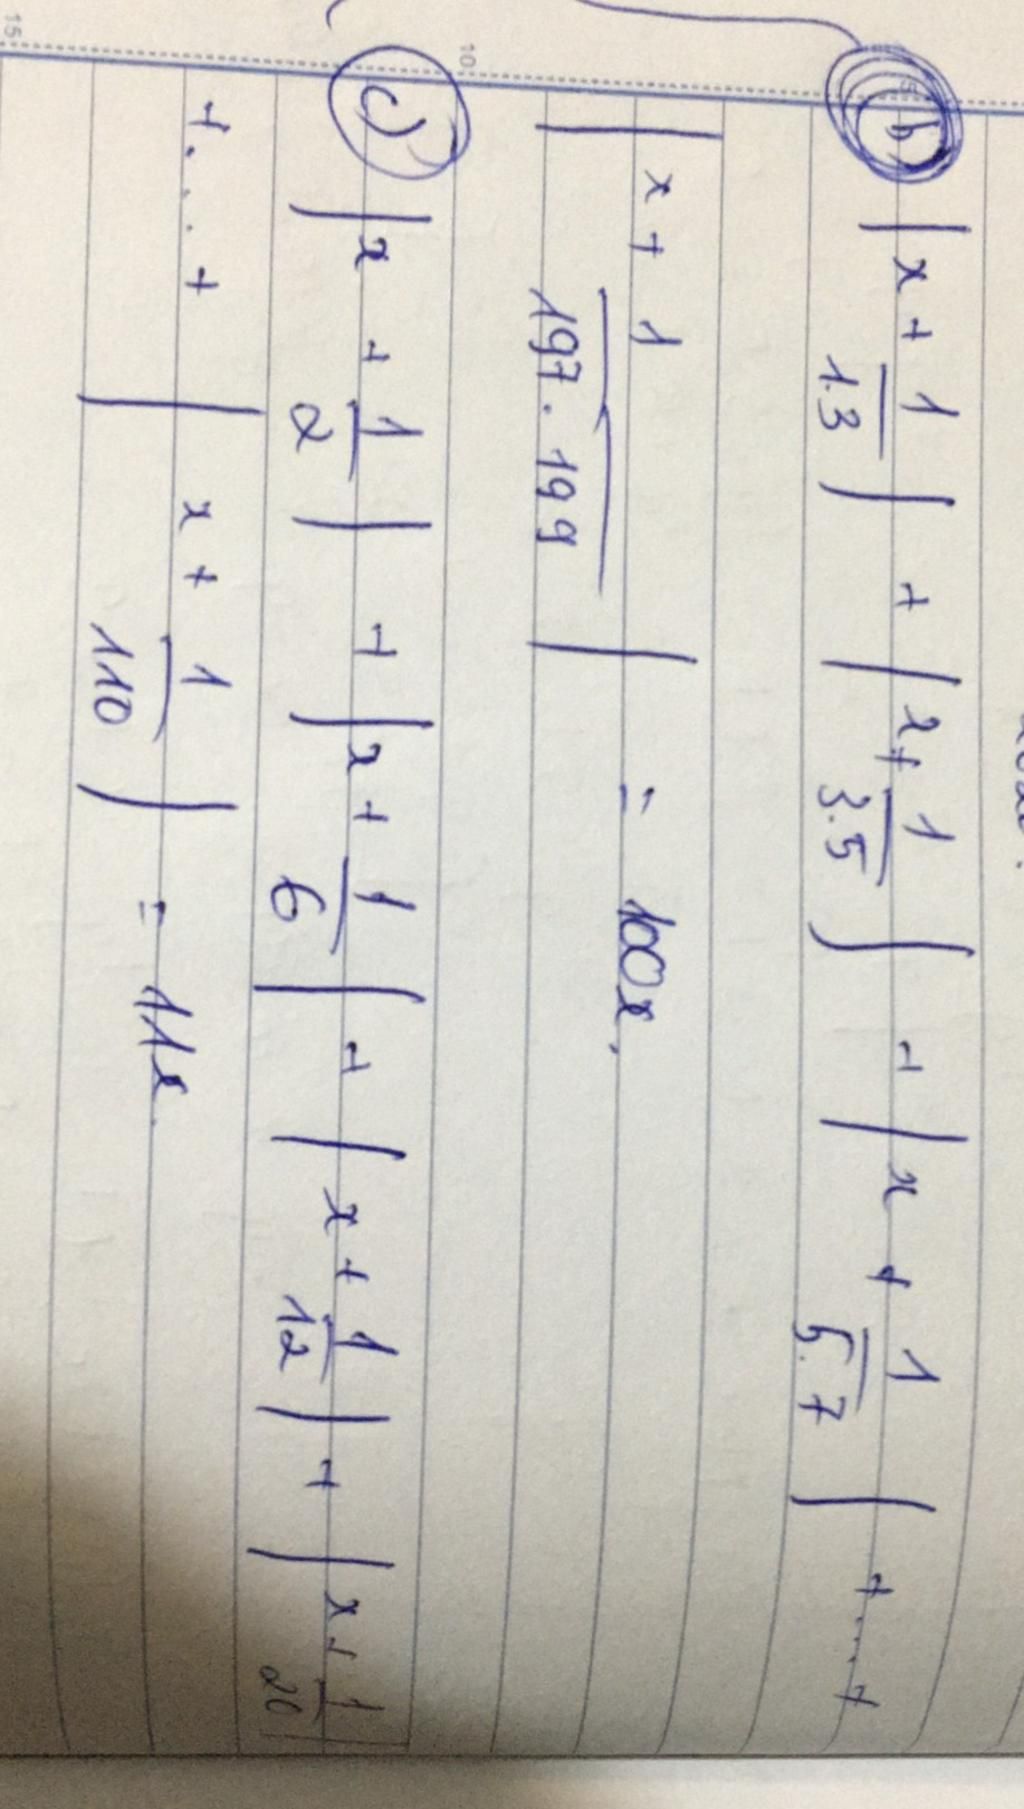 b) | x + 1/1.3 | + | x + 1/3.5 | + | x + 1/5.7 | + .... +
| x + 1/197.199 | = 100x.
c) | x + 1/2 | + | x + 1/6 | + | x + 1/12 | + | x + 1/20 |
+ ... + | x + 1/110 | = 11x
5
10
15